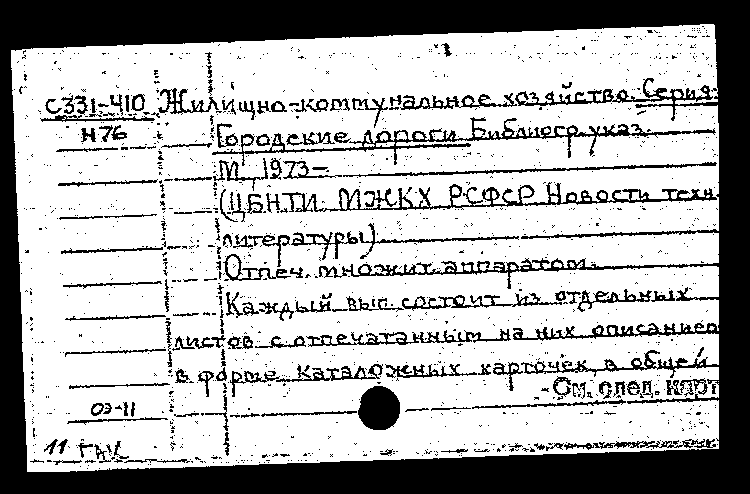 С331-410 Жилищно-коммунальное хозяйство. Серия:
Н76 Городские дороги. Библиогр. указ.
М., 1973-
(ЦБНТИ МЖКХ РСФСР Новости техн.
литературы)
Отпеч. множит. аппаратом.
Каждый вып. состоит из отдельных
листов с отпечатанным на них описанием
в форме каталожных карточек, в общей
-См. след. карт
03-11
11 ГАК